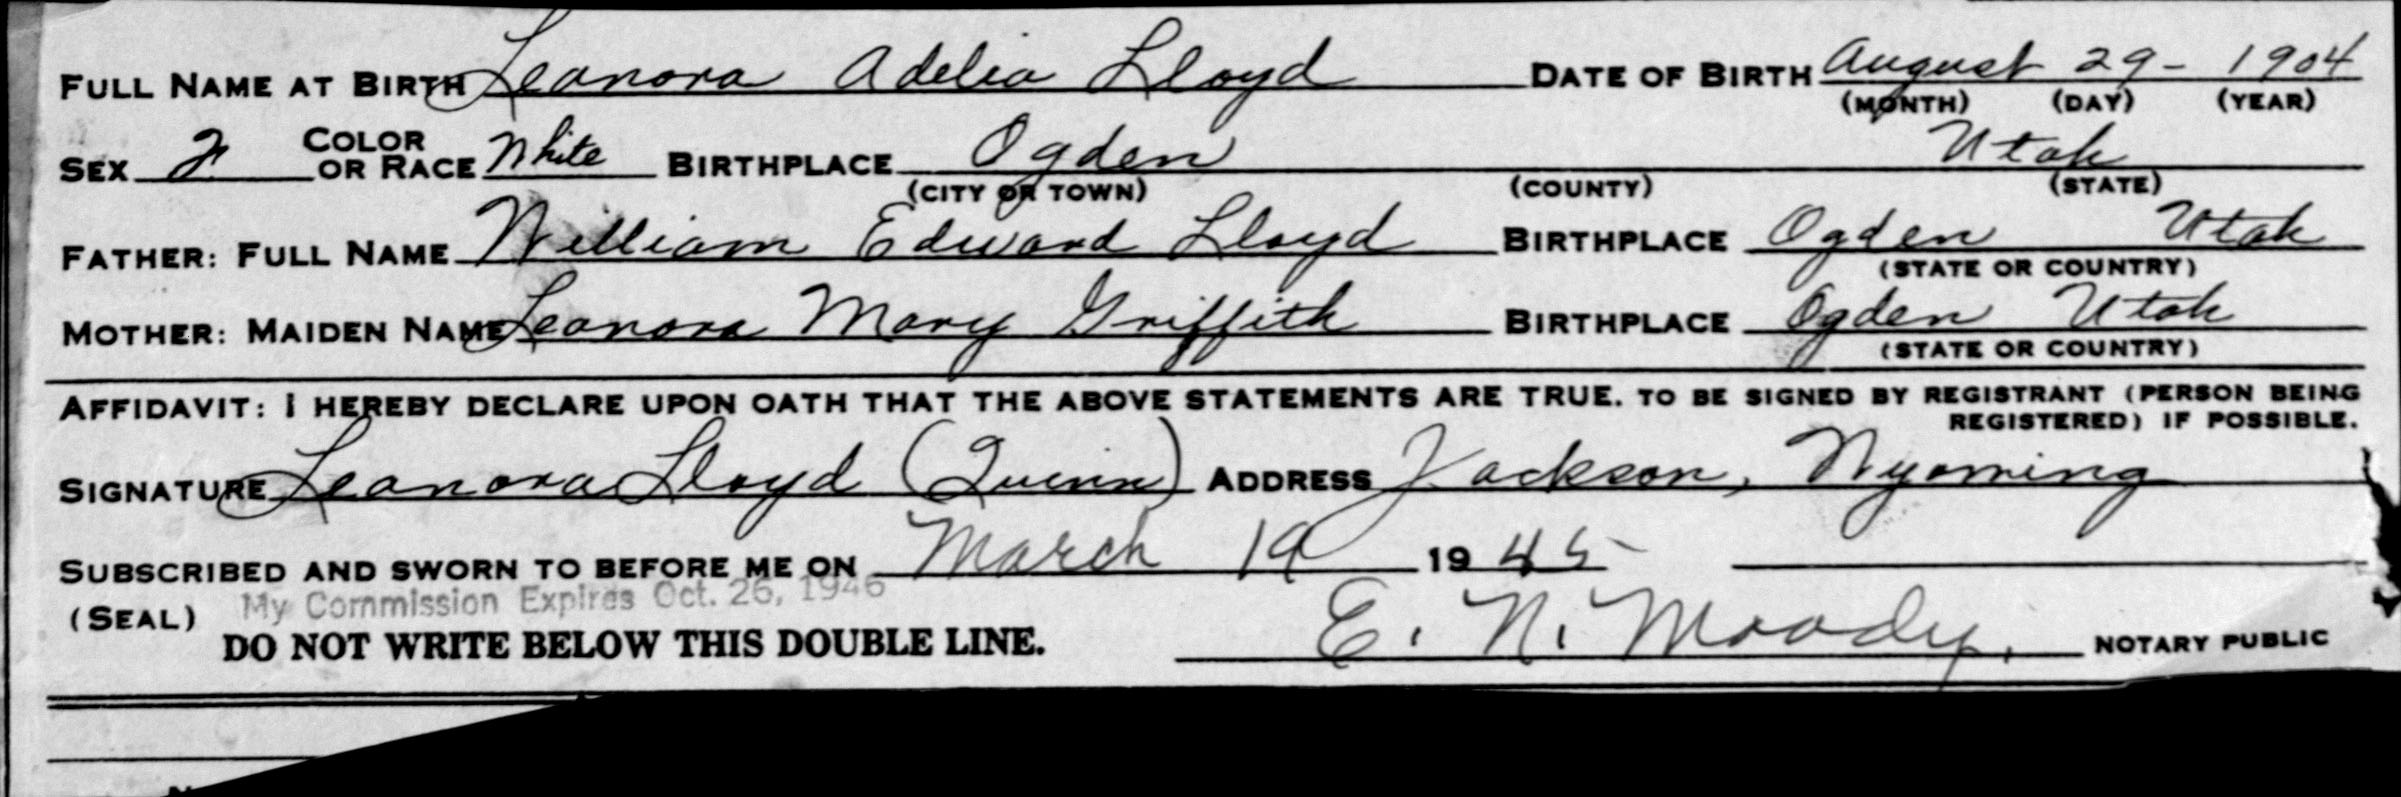 FULL NAME AT BIRTH Leanora Adelia Lloyd DATE OF BIRTH August 29- 1904
(MONTH) (DAY) (YEAR)
SEX F COLOR OR RACE White BIRTHPLACE Ogden Utah
(CITY OR TOWN) (COUNTY) (STATE)
FATHER: FULL NAME William Edward Lloyd BIRTHPLACE Ogden Utah
(STATE OR COUNTRY)
MOTHER: MAIDEN NAME Leanora Mary Griffith BIRTHPLACE Ogden Utah
(STATE OR COUNTRY)
AFFIDAVIT: I HEREBY DECLARE UPON OATH THAT THE ABOVE STATEMENTS ARE TRUE. TO BE SIGNED BY REGISTRANT (PERSON BEING
REGISTERED) IF POSSIBLE.
SIGNATURE Leanora Lloyd (Quinn) ADDRESS Jackson, Wyoming
SUBSCRIBED AND SWORN TO BEFORE ME ON March 19 1945
(SEAL) My Commission Expires Oct. 26, 1946
DO NOT WRITE BELOW THIS DOUBLE LINE. E. N. Moody, NOTARY PUBLIC